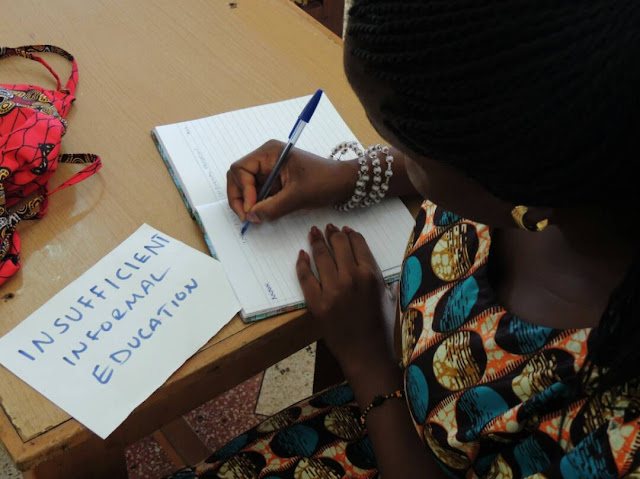 INSUFFICIENT
INFORMAL
EDUCATION